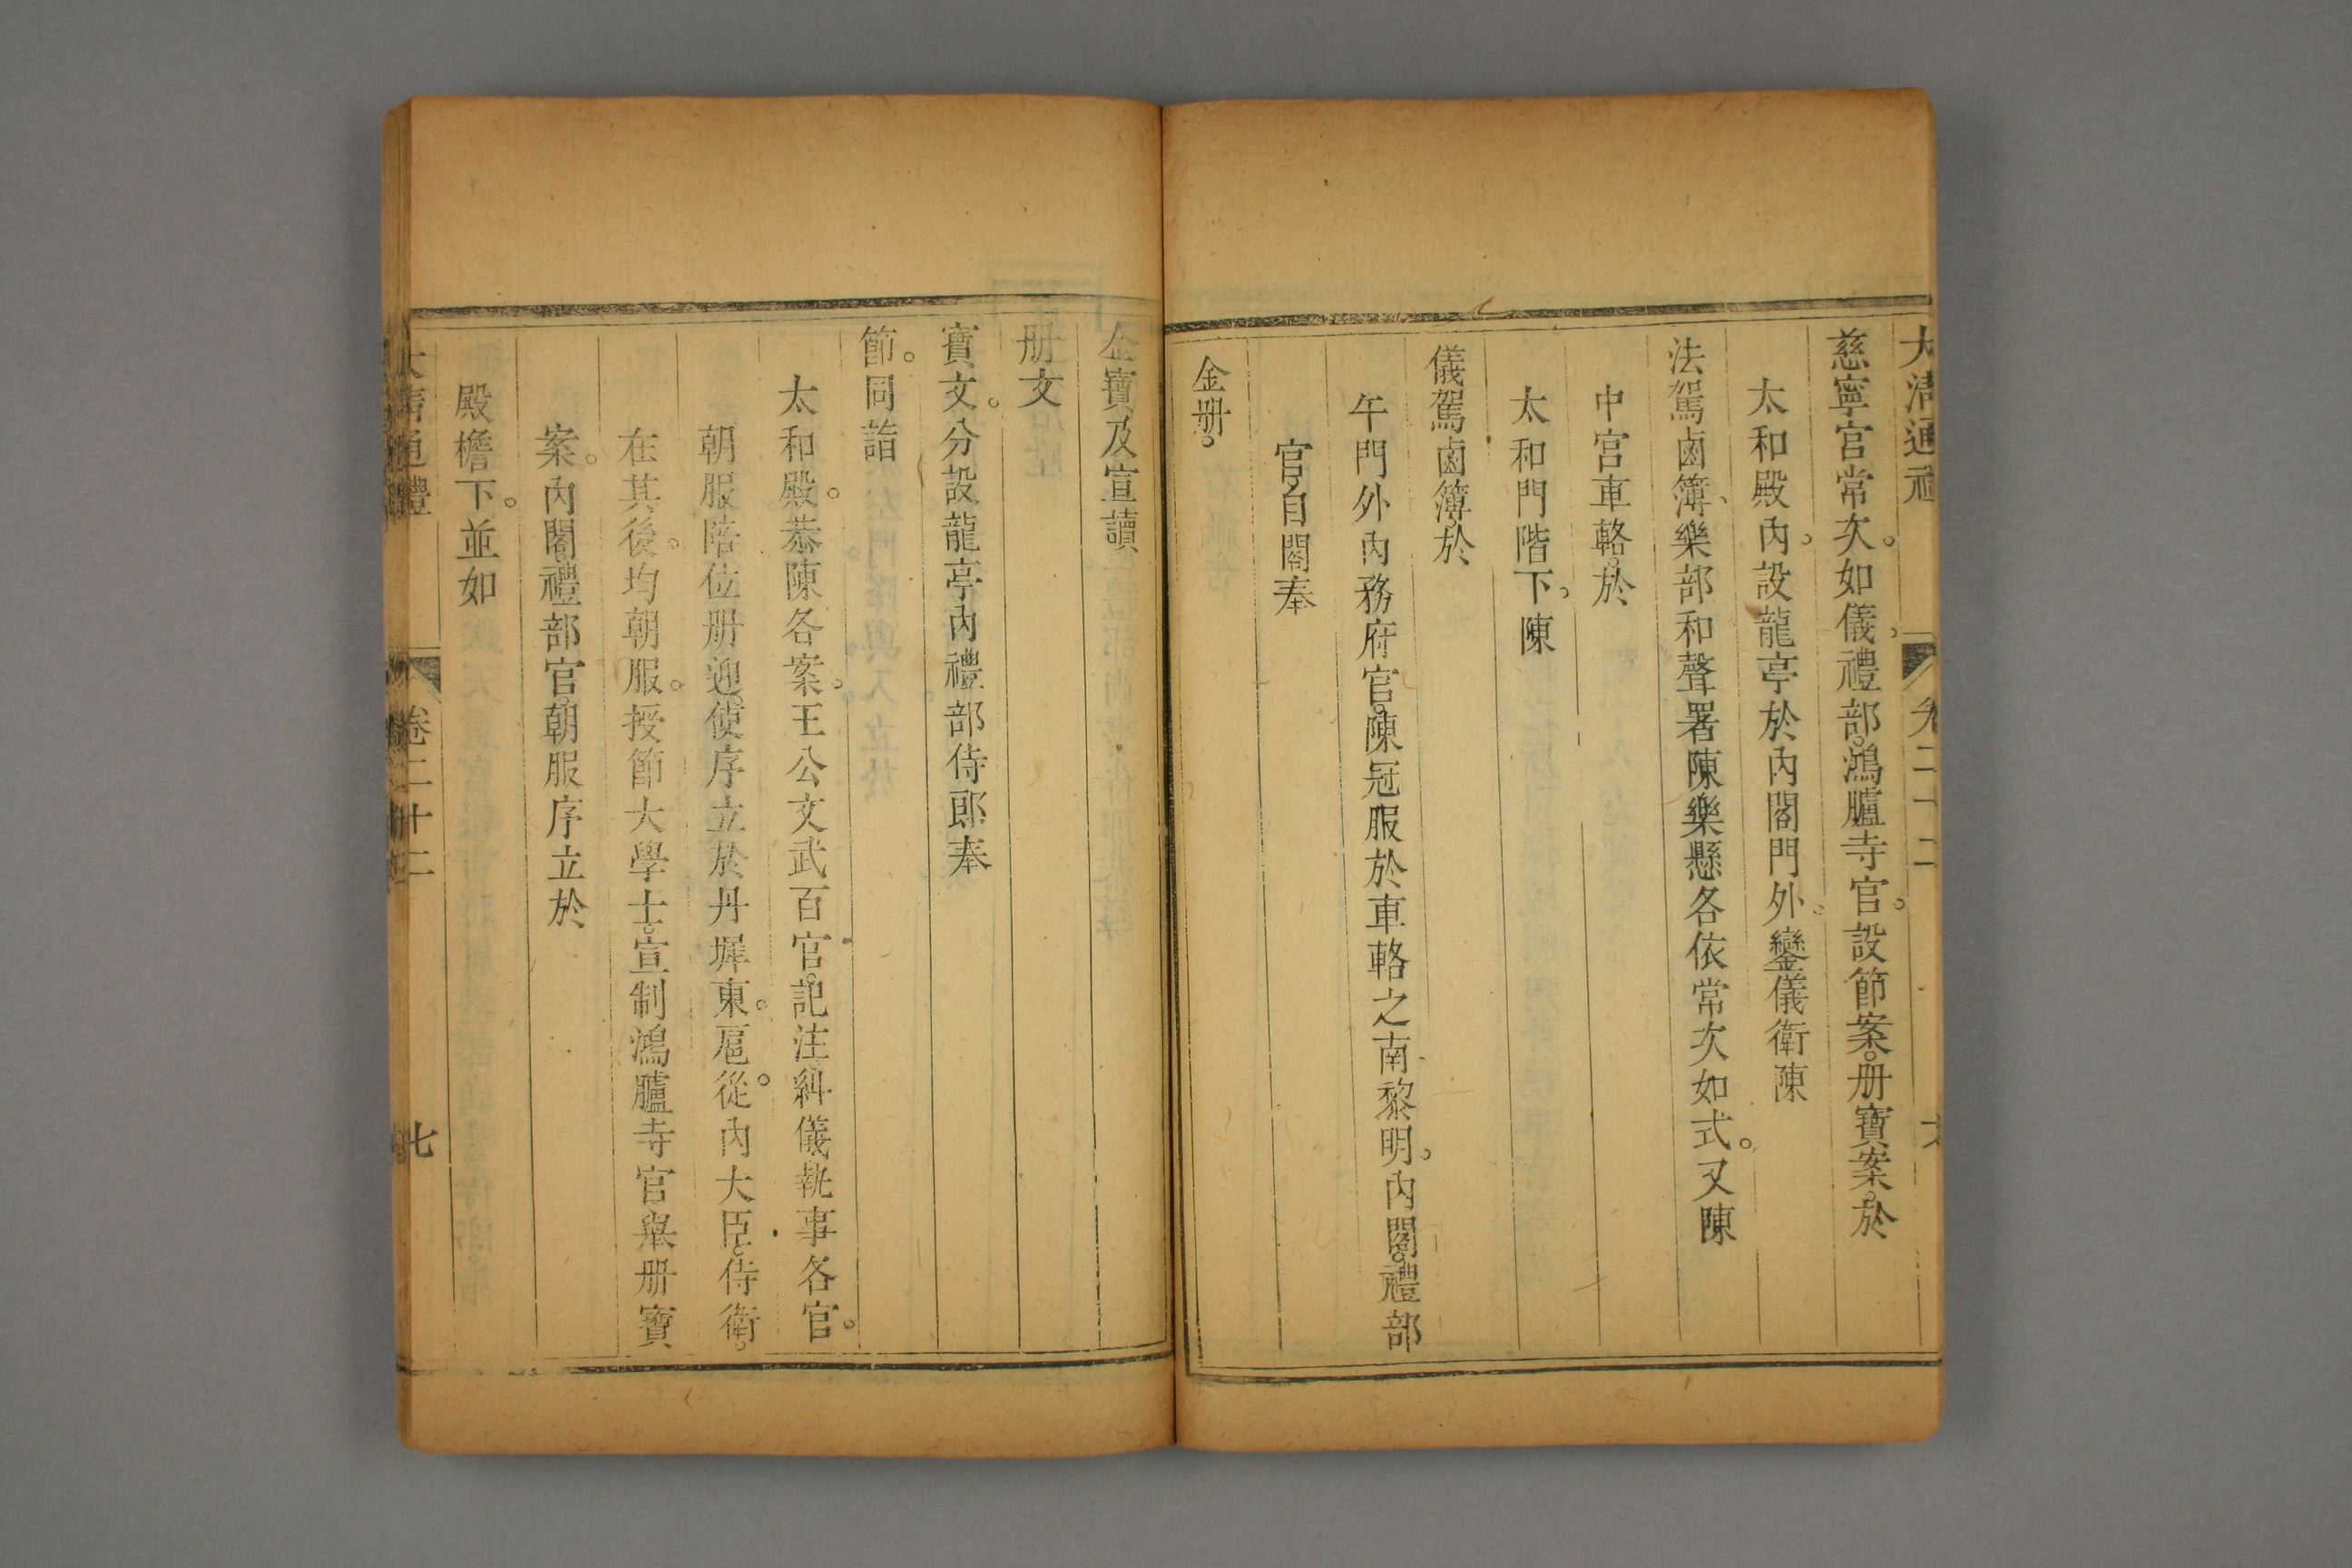 大清通禮 卷二十二 六
慈寧宮常次。如儀。禮部。鴻臚寺官。設節案。册寶案。於
太和殿內。設龍亭於內閣門外。鑾儀衛陳
法駕鹵簿、樂部和聲署陳樂懸各依常次如式。又陳
中宮車輅。於
太和門階下。陳
儀駕鹵簿。於
午門外內務府官。陳冠服於車輅之南黎明。內閣。禮部
官自閣奉
金册。
金寶及宣讀
册文
寶文。分設龍亭內禮部侍郎奉
節。同詣
太和殿。恭陳各案。王公文武百官。記注糾儀執事各官。
朝服陪位册迎。使序立於丹墀東。扈從。內大臣。侍衛。
在其後。均朝服。授節大學士。宣制鴻臚寺官舉册寶
案。內閣。禮部官。朝服序立於
殿檐下。並如
大清通禮 卷二十二 七